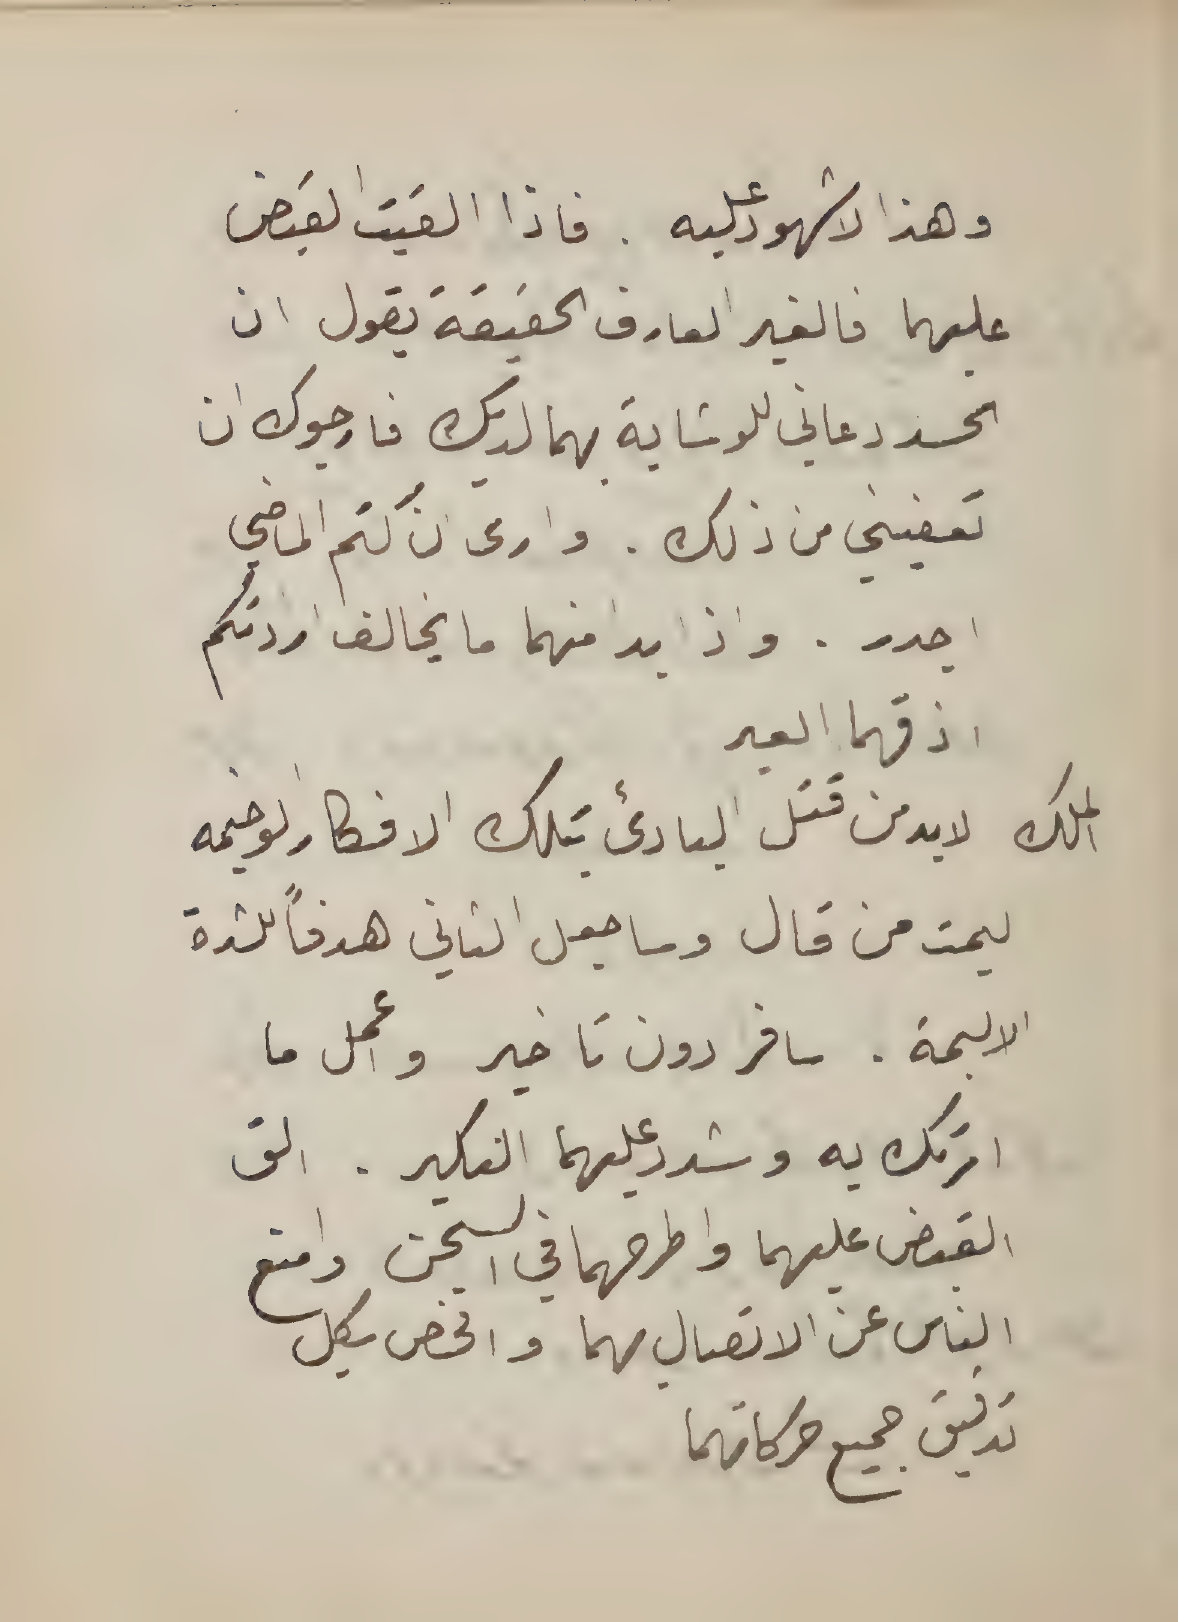 وهذا لاشهود عليه . فاذا القيت القبض
عليهما فالغير العارف الحقيقة يقول ان
الحسد دعاني للوشاية بهما لديك فارجوك ان
تعفيني من ذلك . وارى ان كتم الماضي
اجدر . واذا بدا منهما ما يخالف ارادتكم
اذقهما العبر
الملك لابد من قتل البادئ بتلك الافكار الوخيمه
ليمت من قال وساجعل الثاني هدفاً للشدة
الاليمة . سافر دون تاخير واعمل ما
امرتك به وشدد عليهما النكير . الق
القبض عليهما واطرحهما في السجن وامنع
الناس عن الاتصال بهما وافحص بكل
تدقيق جميع حركاتهما